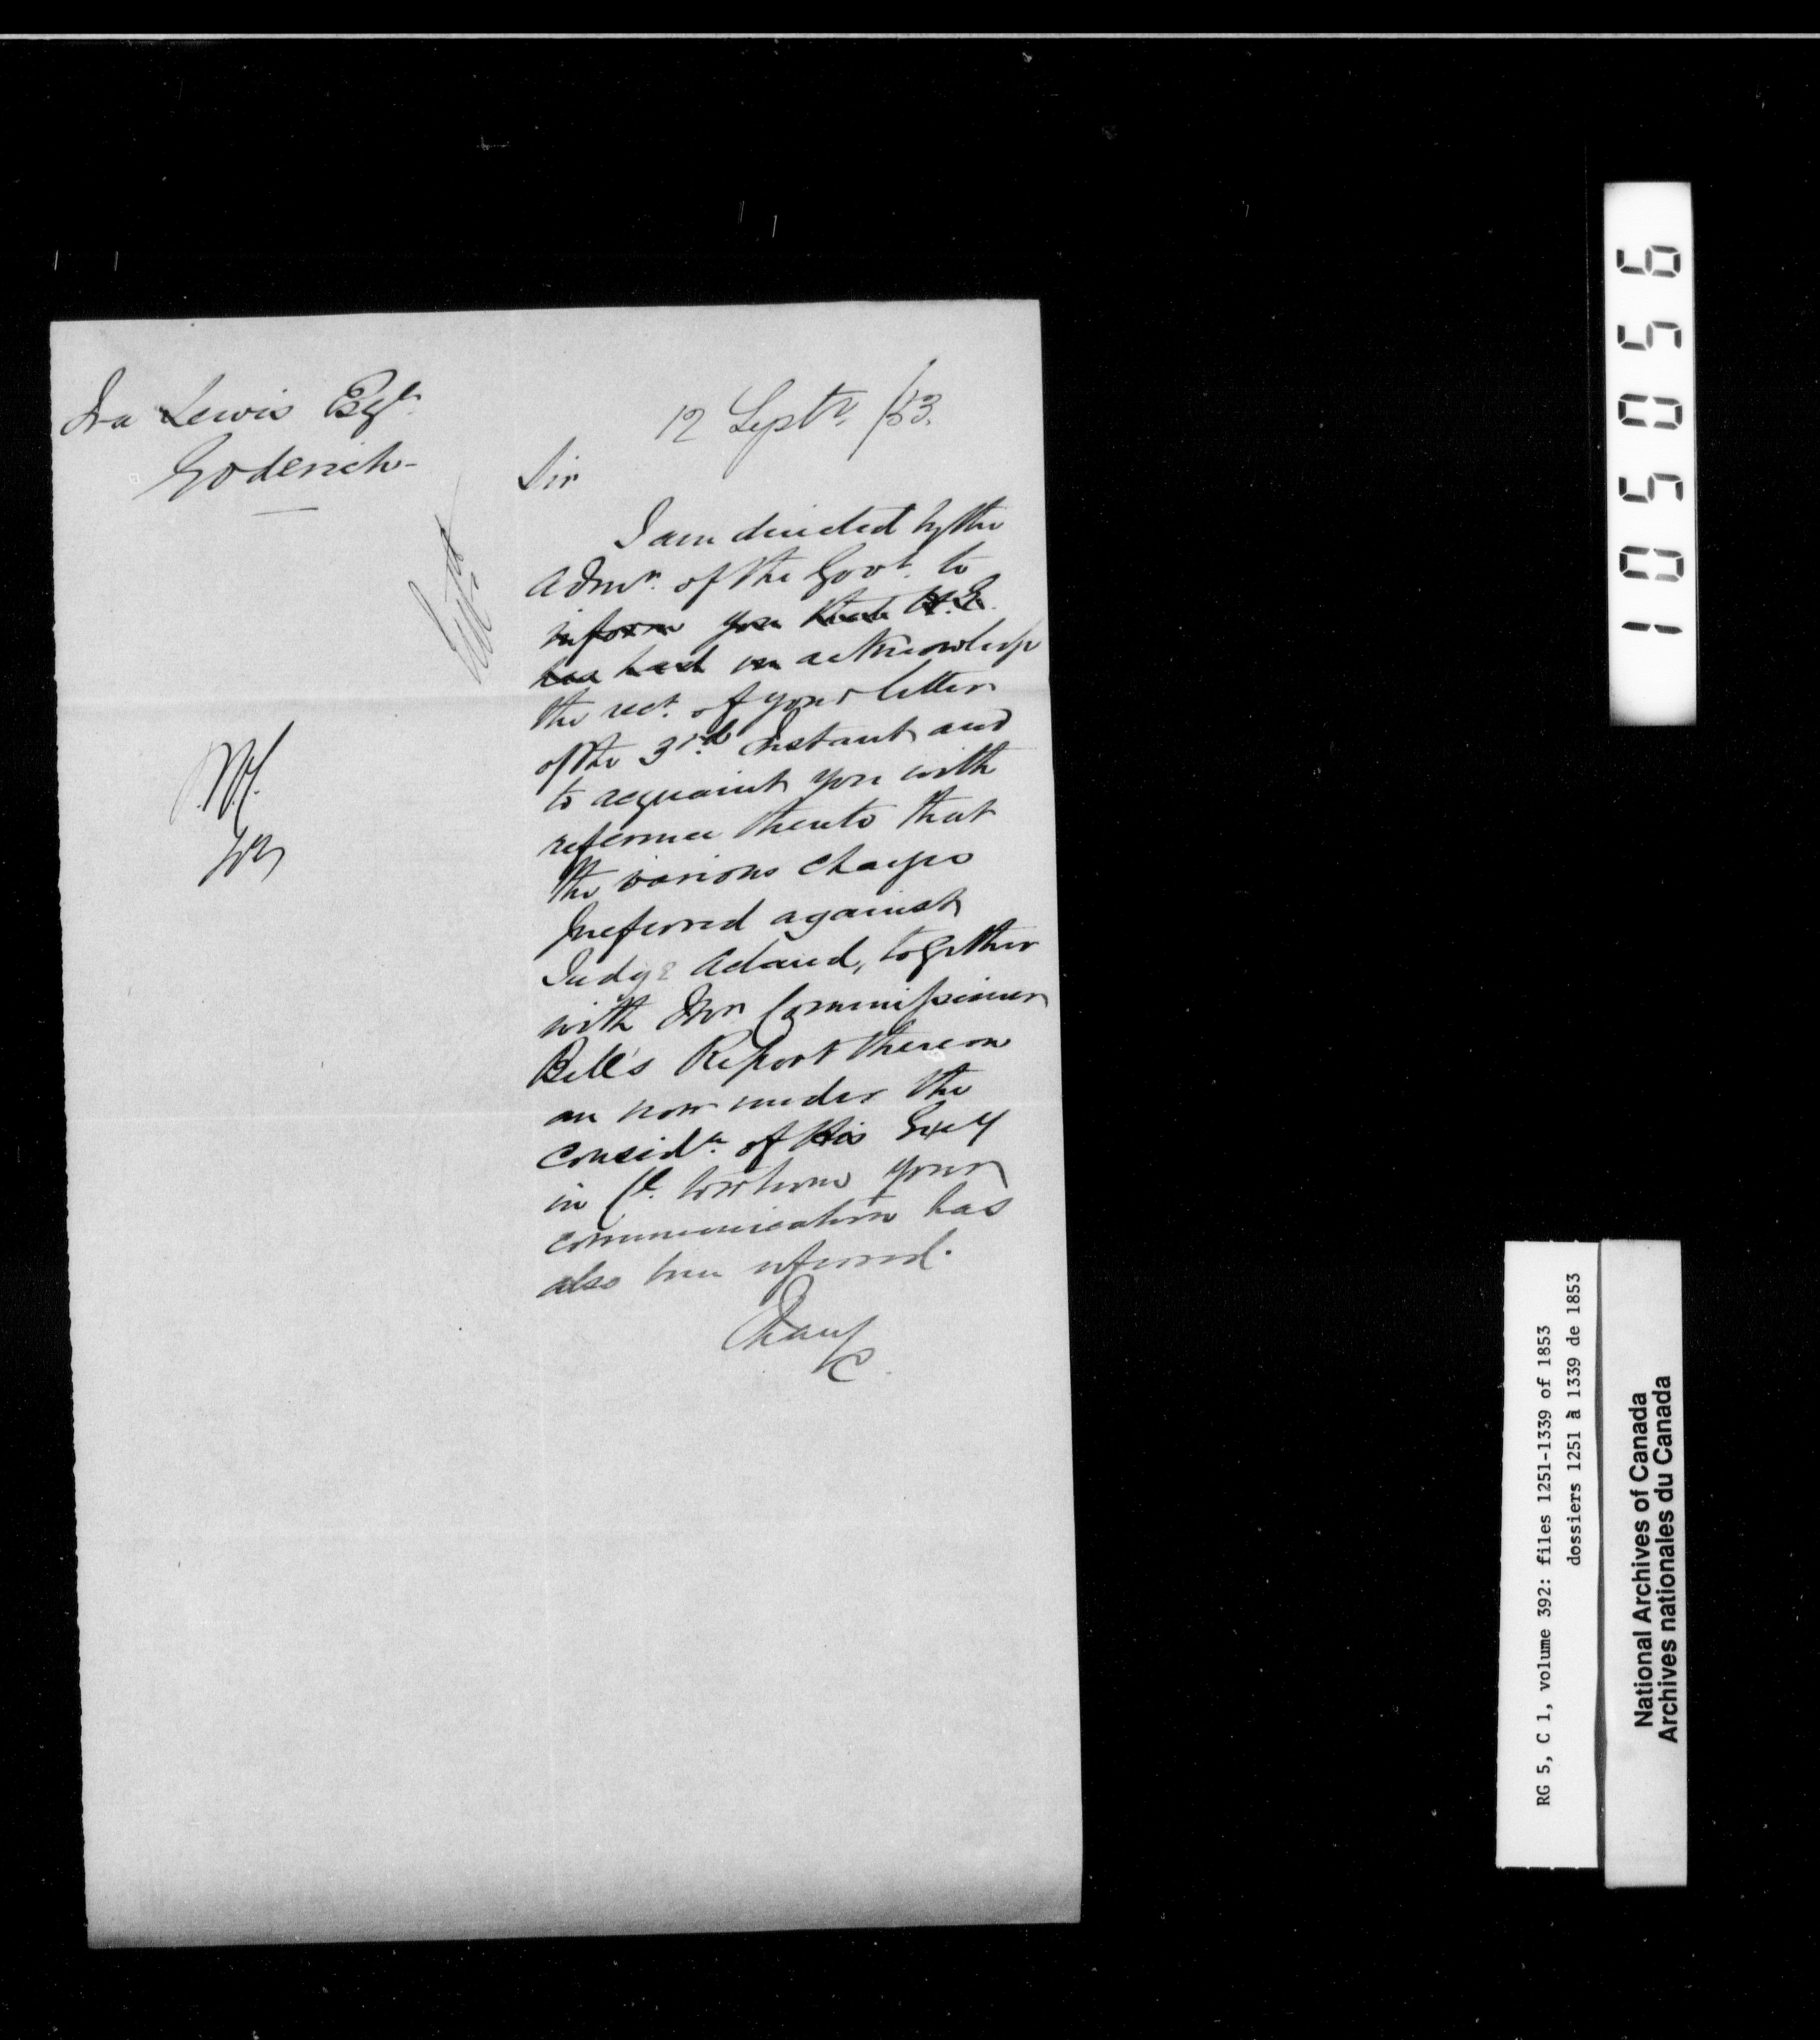 Ira Lewis Esqr.
Goderich
12 Septr. /53.
Sir
I am directed by the
Admr. of the Govt. to
inform you that H.E.
has had an acknowledge
the rect. of your letter
of the 3rd. Instant and
to acquaint you with
reference thereto that
the various charges
preferred against
Judge Acland, together
with Mr. Commissioner
Bell's Report thereon
are now under the
considn. of His Excy
in Cl. to whom your
communication has
also been referred.
I have
&c.
105056
RG 5, C 1, volume 392: files 1251-1339 of 1853
dossiers 1251 à 1339 de 1853
National Archives of Canada
Archives nationales du Canada